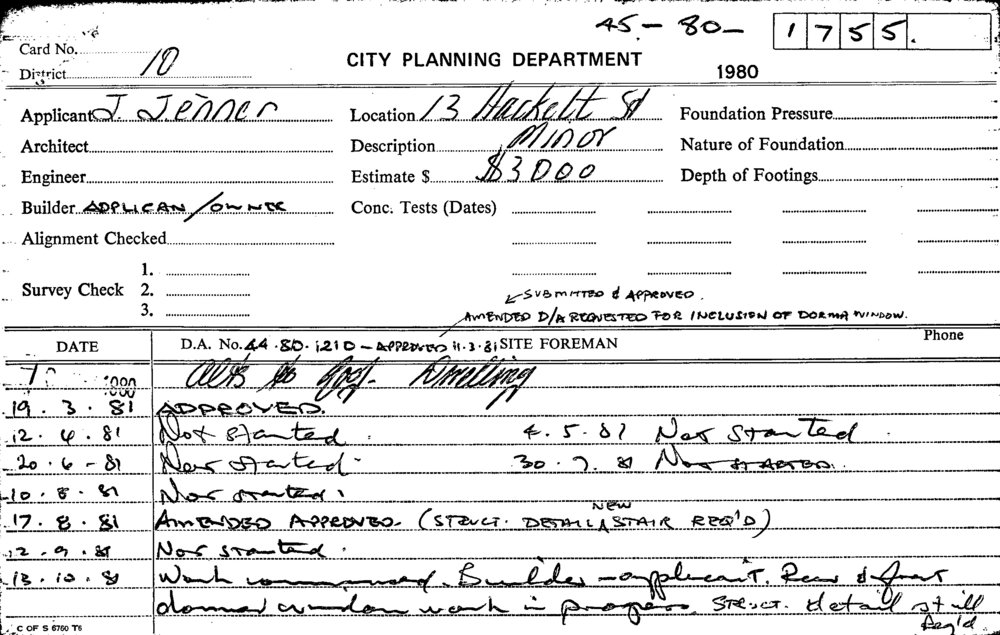 45-80- 1755.
Card No.
District 10
CITY PLANNING DEPARTMENT
1980
Applicant J. Jenner
Location 13 Hackett St
Foundation Pressure
Architect
Description Minor
Nature of Foundation
Engineer
Estimate $ $3000
Depth of Footings
Builder APPLICAN/OWNER
Conc. Tests (Dates)
Alignment Checked
1.
Survey Check 2.
3.
SUBMITTED & APPROVED.
AMENDED D/A REQUESTED FOR INCLUSION OF DORMA WINDOW.
DATE
D.A. No. 44.80.1210 - APPROVED 11.3.81 SITE FOREMAN
Phone
Alts to Dwelling
19.3.81 APPROVED.
12.4.81 Not started. 4.5.81 Not started.
20.6-81 Not started. 30.7.81 NOT STARTED.
10.8.81 Not started.
17.8.81 AMENDED APPROVED. (STRUCT. DETAIL NEW STAIR REQ'D)
12.9.81 Not started.
13.10.81 Work commenced. Builder - applicant. Rear & front
dormer window work in progress. STRUCT. detail still
Req'd
C OF S 6760 T6